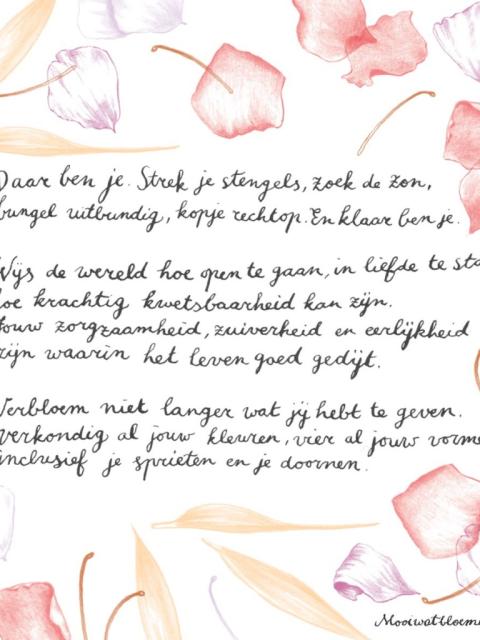 Daar ben je. Strek je stengels, zoek de zon,
bungel uitbundig, kopje rechtop. En klaar ben je.
Wijs de wereld hoe open te gaan, in liefde te sta
hoe krachtig kwetsbaarheid kan zijn.
Jouw zorgzaamheid, zuiverheid en eerlijkheid
zijn waarin het leven goed gedijt.
Verbloem niet langer wat jij hebt te geven.
Verkondig al jouw kleuren, vier al jouw vorme
inclusief je sprieten en je doornen.
Mooiwatbloem